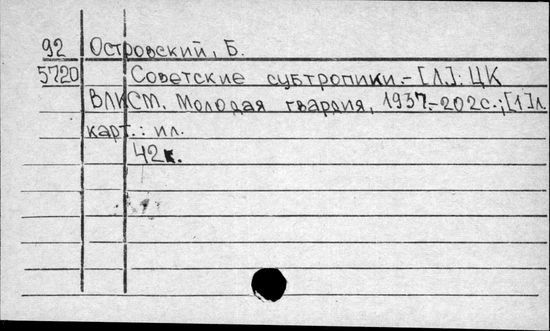 92 Островский, Б.
5720 Советские субтропики.-[Л.]: ЦК
ВЛКСМ. Молодая гвардия, 1937.-202с.;[1]л.
карт.: ил.
42к.